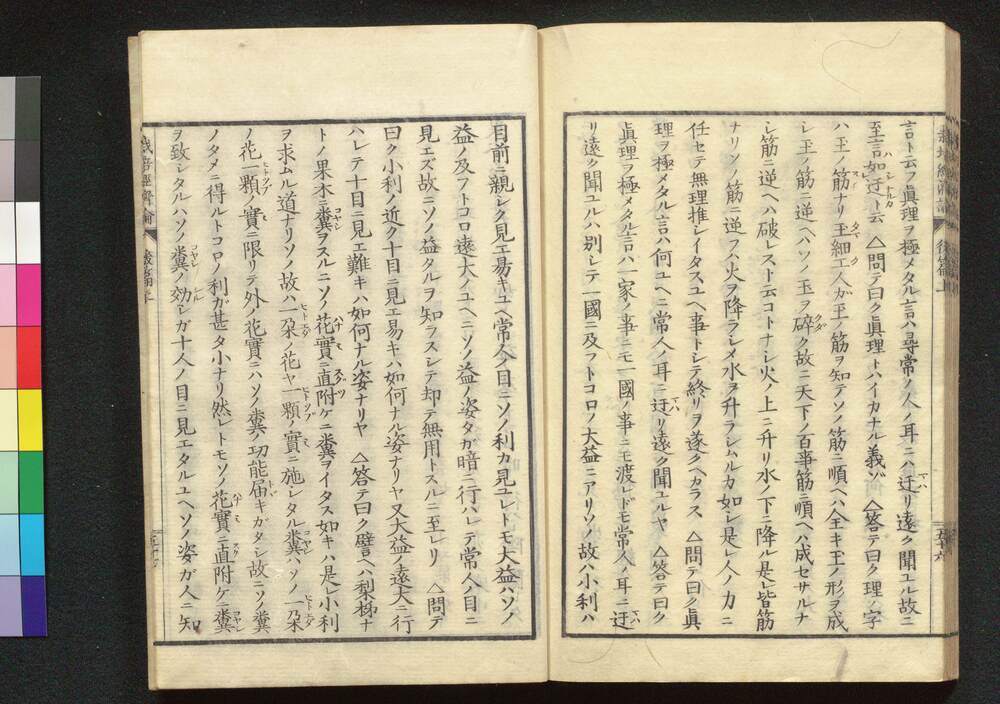 言ト云フ眞理ヲ極メタル言ハ尋常ノ人ノ耳ニハ迂リ遠ク聞ユル故ニ
至言如迂ト云　△問テ曰ク眞理トハイカナル義ゾ　△答テ曰ク理ノ字
ハ玉ノ筋ナリ玉細工人ガ玉ノ筋ヲ知テソノ筋ニ順ヘハ全キ玉ノ形ヲ成
シ玉ノ筋ニ逆ヘハソノ玉ヲ碎ク故ニ天下ノ百事筋ニ順ヘハ成セサルナ
シ筋ニ逆ヘハ破レスト云コトナシ火ノ上ニ升リ水ノ下ニ降ル是レ皆筋
ナリソノ筋ニ逆フハ火ヲ降ラシメ水ヲ升ラシムルカ如シ是レ人ノ力ニ
任セテ無理推シイタスユヘ事トシテ終リヲ遂クヘカラス　△問テ曰ク眞
理ヲ極メタル言ハ何ユヘニ常人ノ耳ニ迂リ遠ク聞ユルヤ　△答テ曰ク
眞理ヲ極メタル言ハ一家ノ事ニモ一國ノ事ニモ渡レドモ常人ノ耳ニ迂
リ遠ク聞ユルハ別シテ一國ニ及フトコロノ大益ニアリソノ故ハ小利ハ
後篇上
五十六
目前ニ親シク見エ易キユヘ常人ノ目ニソノ利カ見ユレトモ大益ハソノ
益ノ及フトコロ遠大ノユヘニソノ益ノ姿タガ暗ニ行ハレテ常人ノ目ニ
見エズ故ニソノ益タルヲ知ラスシテ却テ無用トスルニ至レリ　△問テ
曰ク小利ノ近ク十目ニ見エ易キハ如何ナル姿ナリヤ又大益ノ遠大ニ行
ハレテ十目ニ見エ難キハ如何ナル姿ナリヤ　△答テ曰ク譬ヘハ梨柿ナ
トノ果木ニ糞ヲスルニソノ花實ニ直附ケニ糞ヲイタス如キハ是レ小利
ヲ求ムル道ナリソノ故ハ一朶ノ花ヤ一顆ノ實ニ施シタル糞ハソノ一朶
ノ花一顆ノ實ニ限リテ外ノ花實ニハソノ糞ノ功能届キガタシ故ニソノ糞
ノタメニ得ルトコロノ利ガ甚タ小ナリ然レトモソノ花實ニ直附ケニ糞
ヲ致シタルハソノ糞ノ効シガ十人ノ目ニ見エタルユヘソノ姿ガ人ニ知
經濟論
後篇上